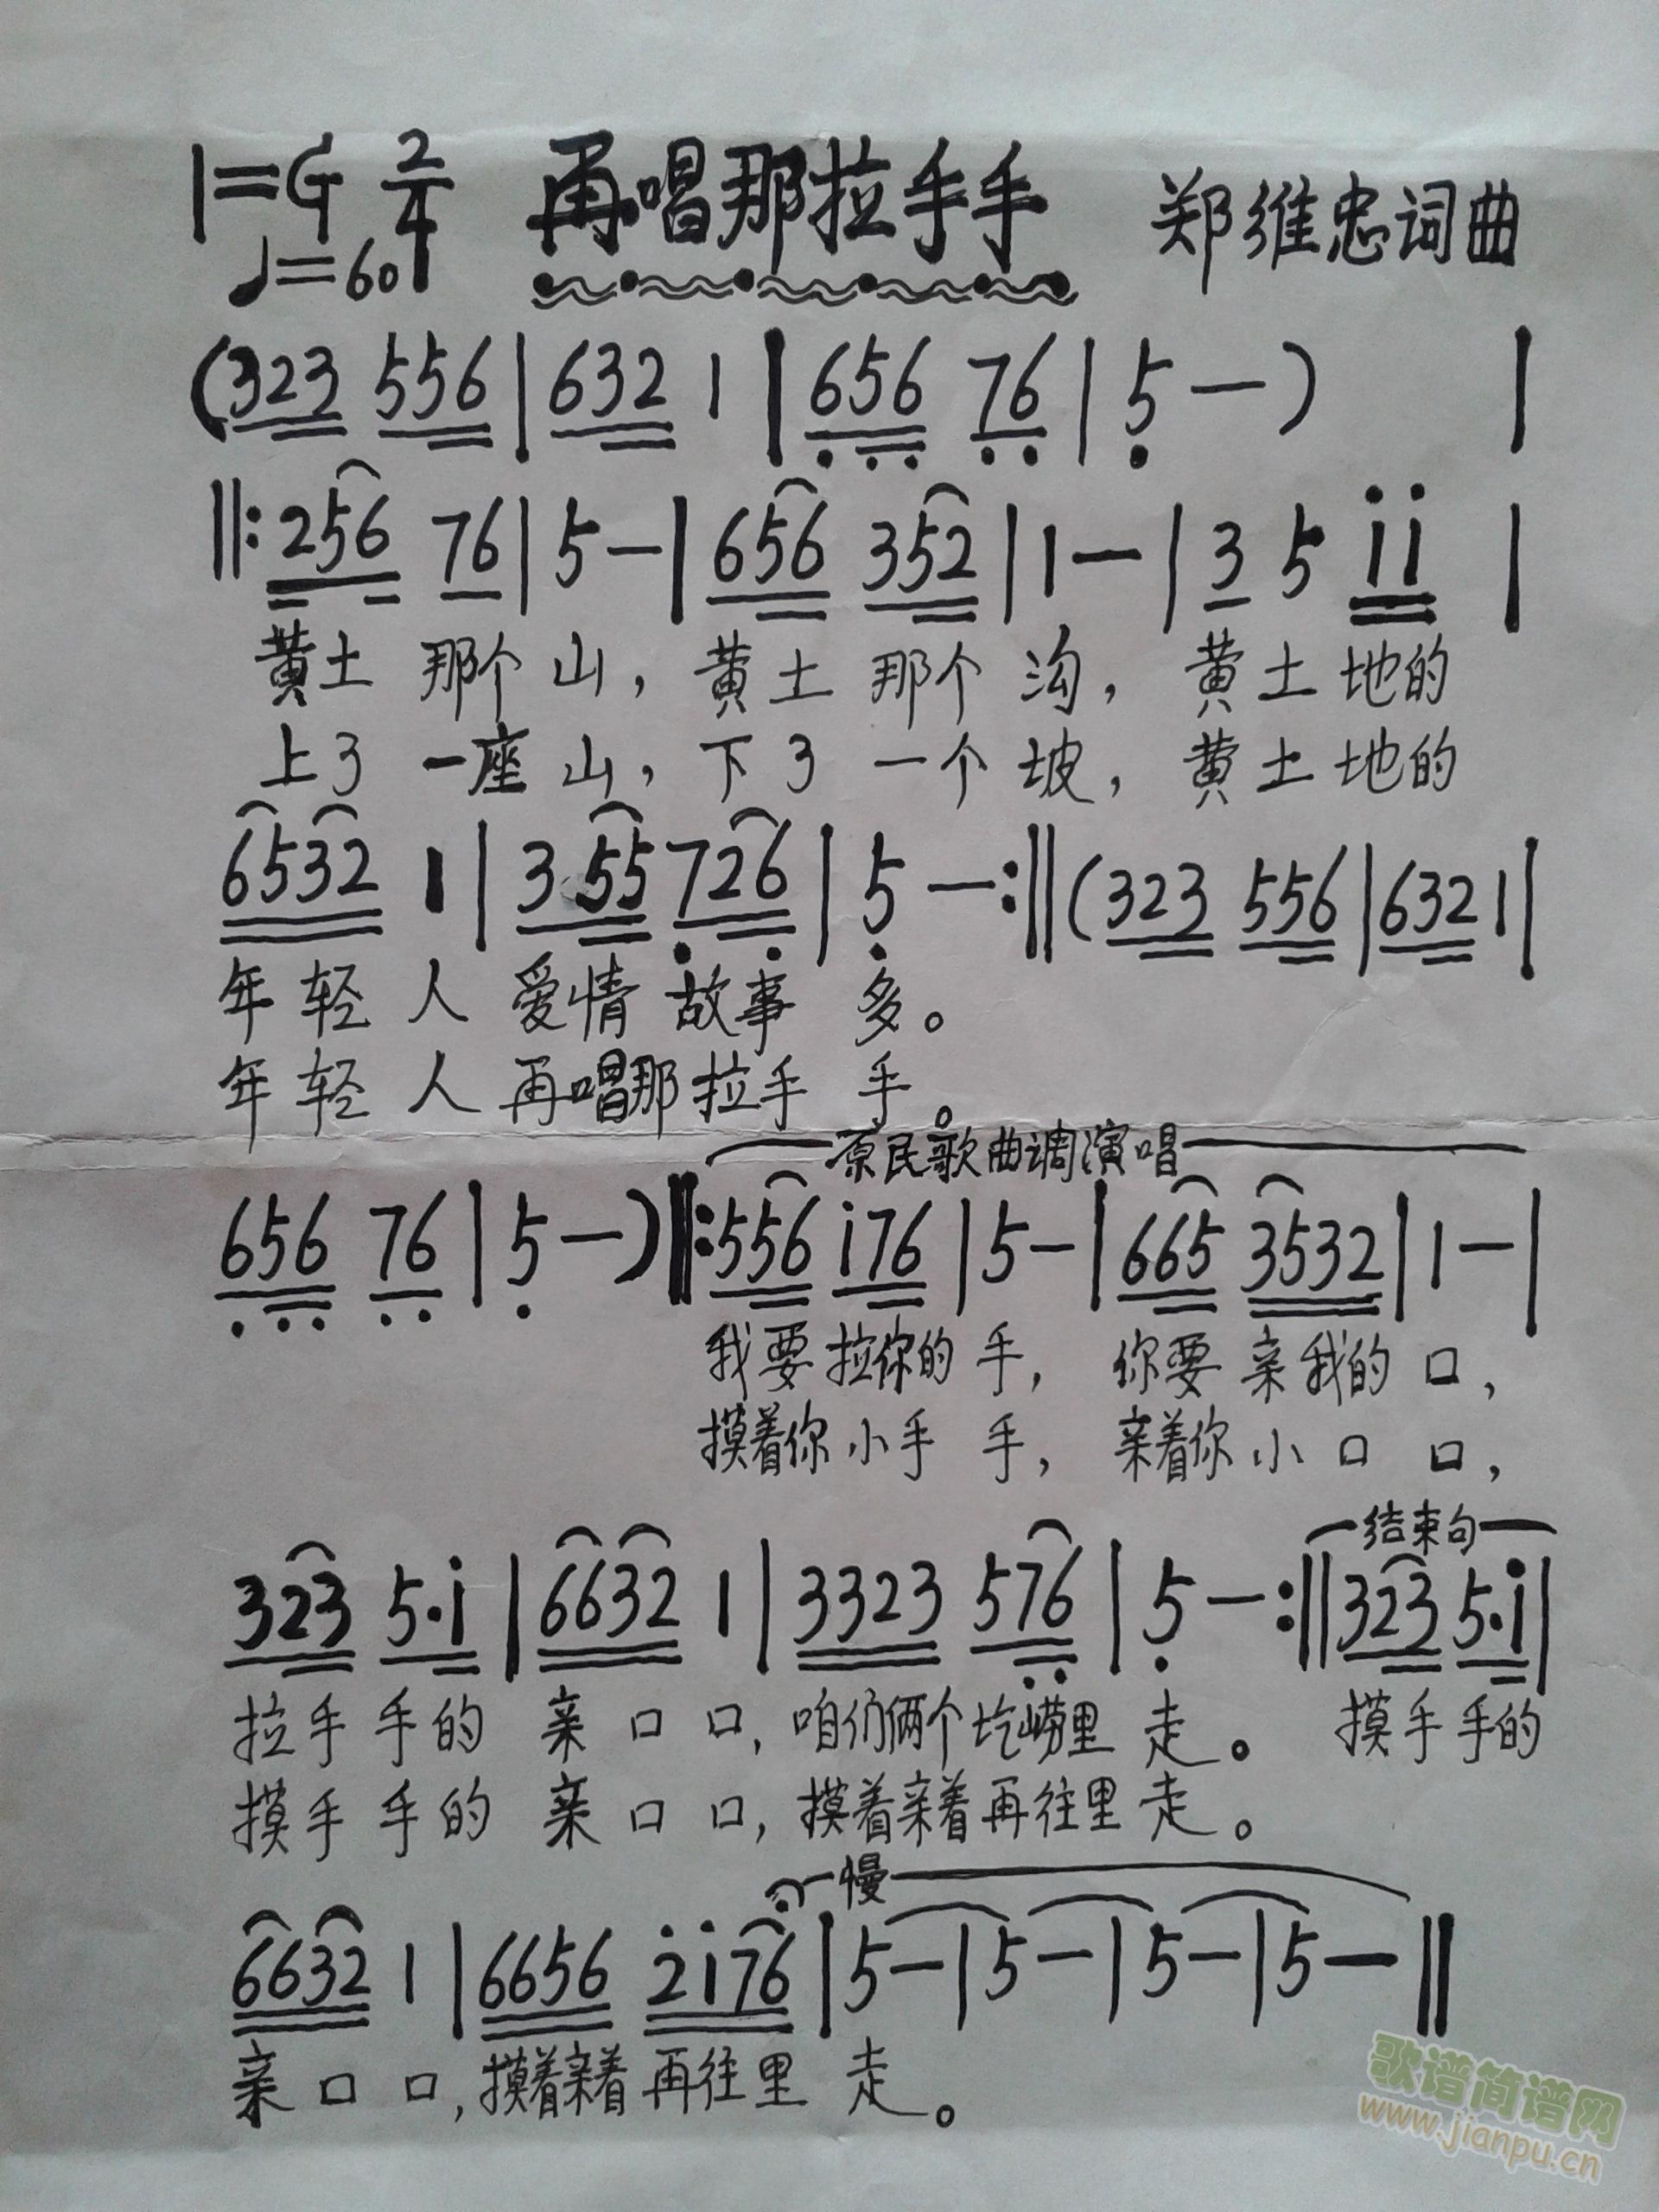 1=G 2/4 再唱那拉手手 郑维忠词曲
♩=60
(323 556 | 632 1 | 656 76 | 5 — ) |
‖: 256 76 | 5 — | 656 352 | 1 — | 3 5 i i |
黄土 那个 山，黄土 那个 沟，黄土地的
上了 一座 山，下了 一个 坡，黄土地的
6532 1 | 3 55 726 | 5 — :‖ (323 556 | 632 1 |
年轻人 爱情 故事 多。
年轻人 再唱那 拉手 手。
原民歌曲调演唱
656 76 | 5 — ) ‖: 556 i76 | 5 — | 665 3532 | 1 — |
我要 拉你的 手，你要 亲我的 口，
摸着你 小手 手，亲着你 小口 口，
结束句
323 5·i | 6632 1 | 3323 576 | 5 — :‖ 323 5·i |
拉手手的 亲口口，咱们俩个圪崂里 走。 摸手手的
摸手手的 亲口口，摸着亲着再往里 走。
慢
6632 1 | 6656 2i76 | 5 — | 5 — | 5 — | 5 — ‖
亲口口，摸着亲着 再往里 走。
歌谱简谱网
www.jianpu.cn